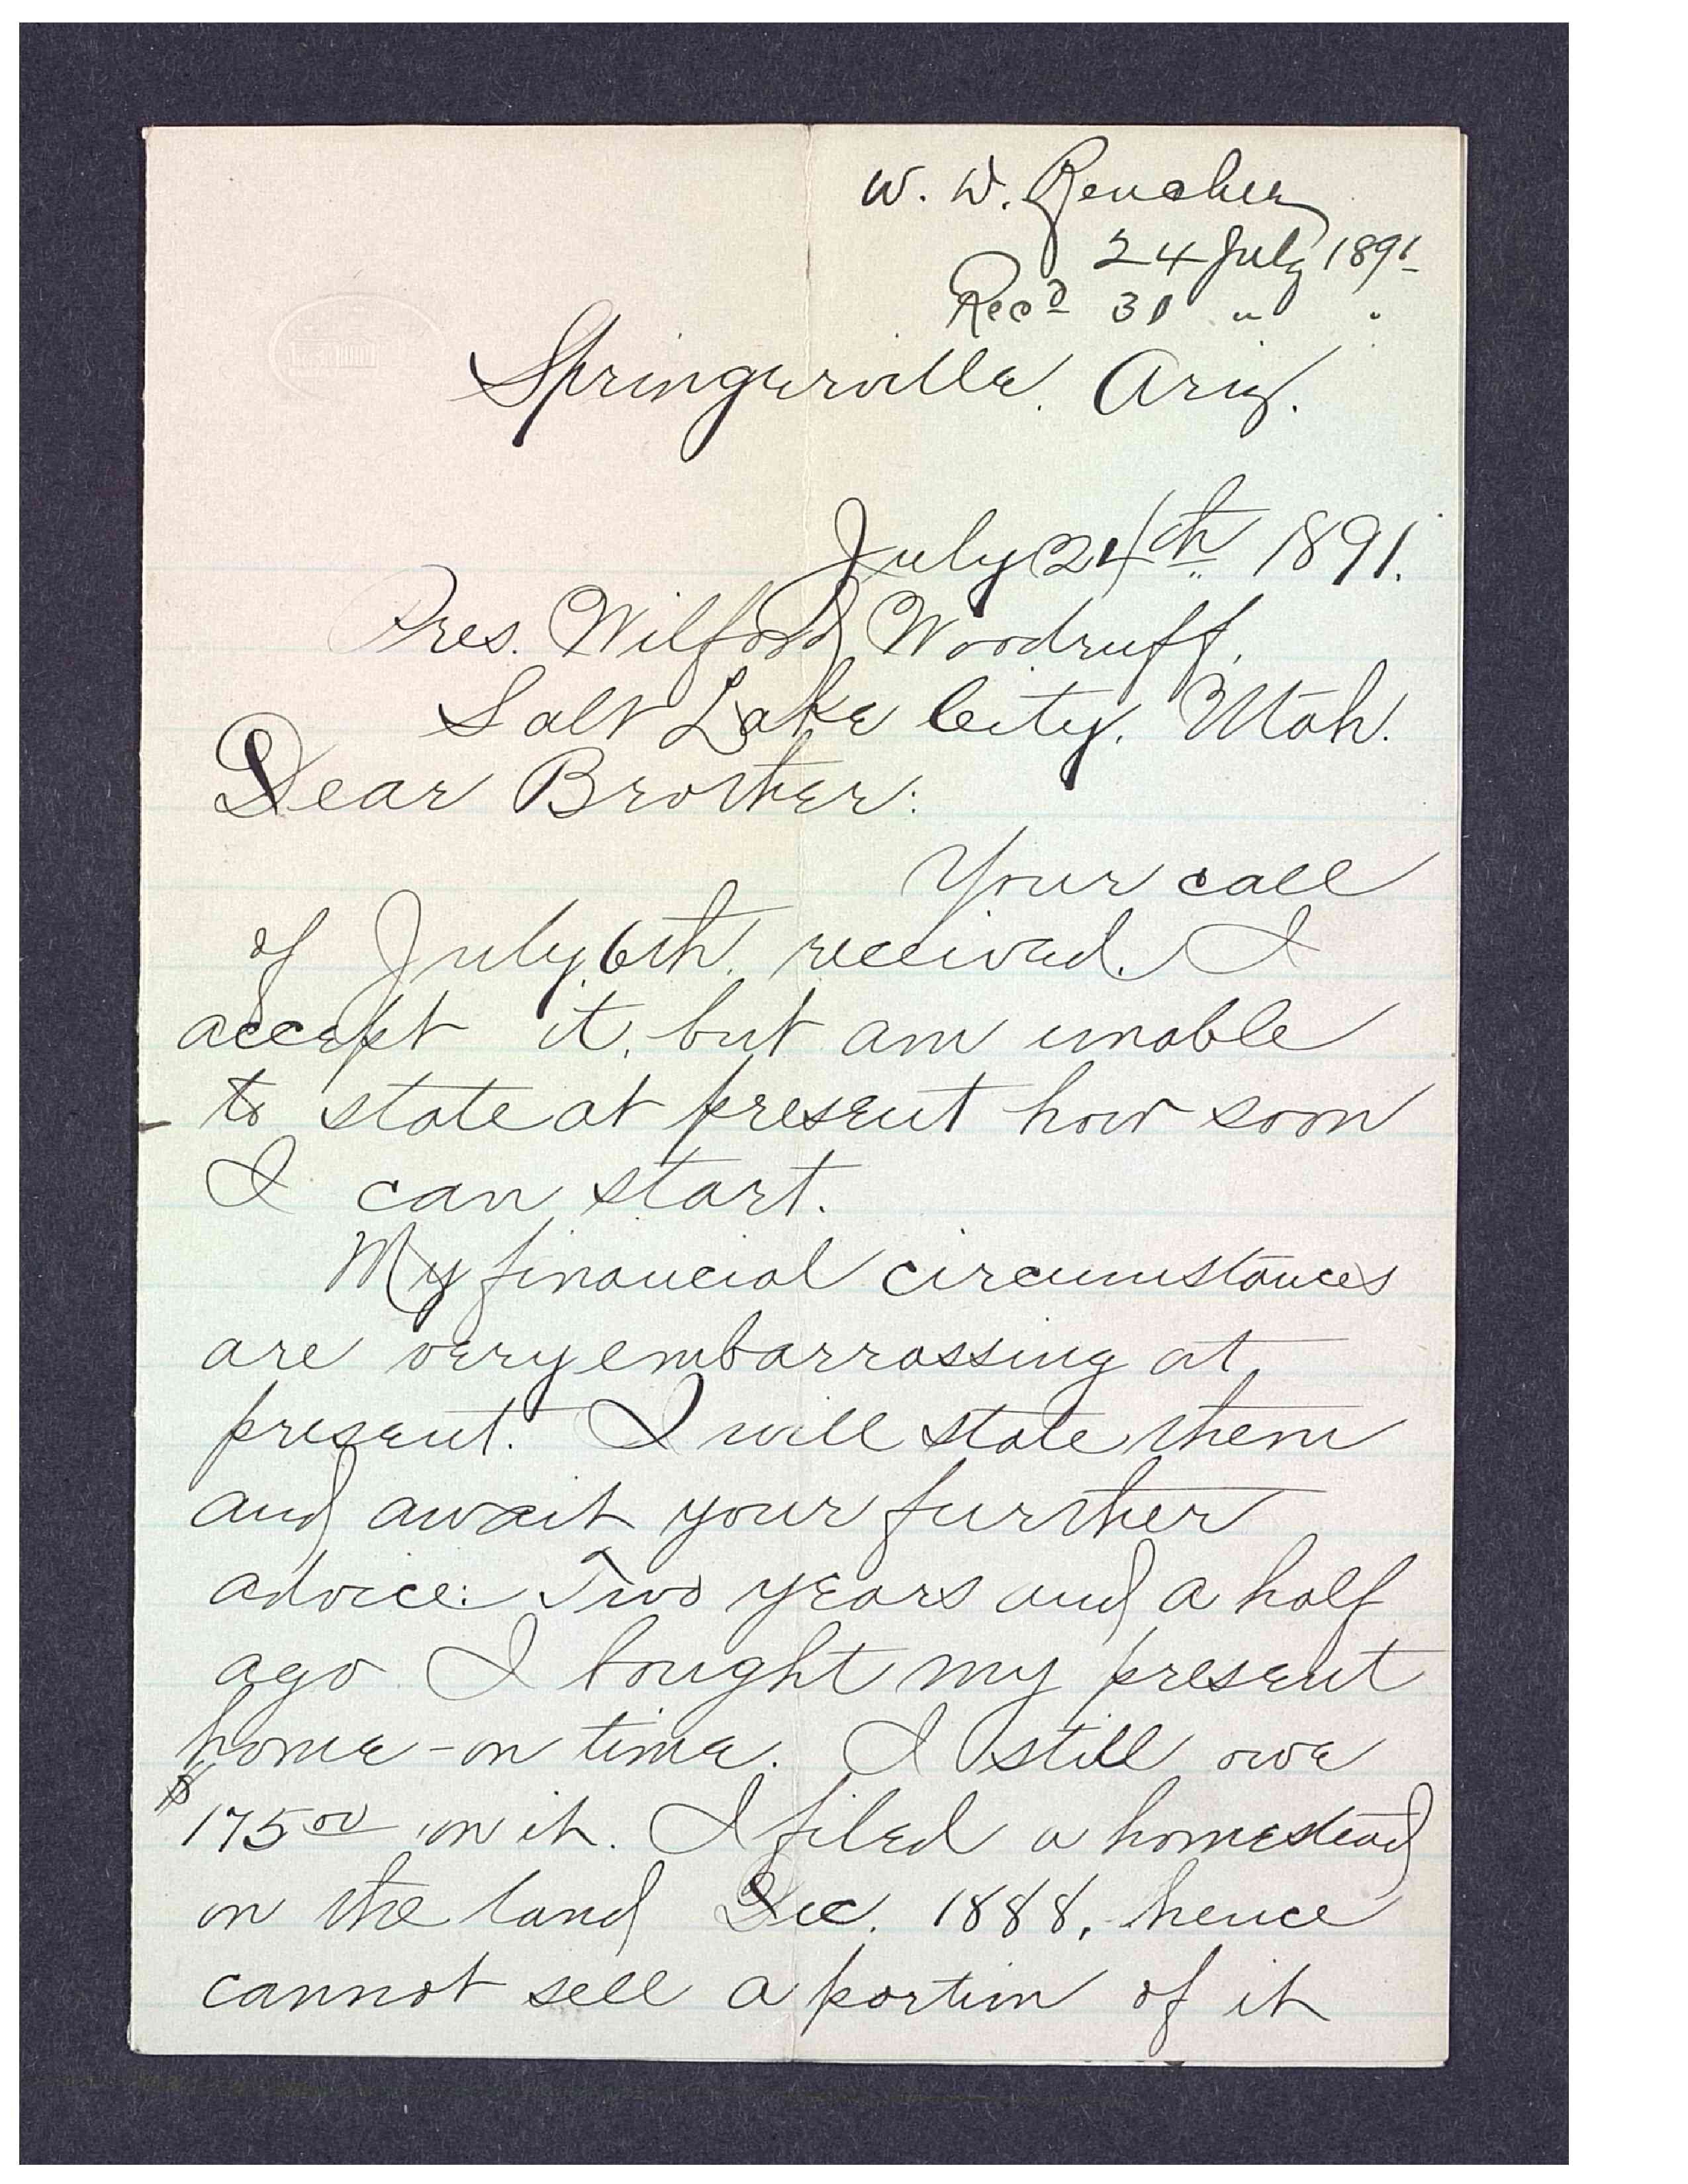 W. W. Rencher
24 July 1891
Recd 31 " "
Springerville. Ariz.
July 24th 1891.
Pres. Wilford Woodruff,
Salt Lake City. Utah.
Dear Brother:
Your call
of July 6th. received. I
accept it, but am unable
to state at present how soon
I can start.
My financial circumstances
are very embarrassing at
present. I will state them
and await your further
advice: Two years and a half
ago I bought my present
home - on time. I still owe
$175 00 on it. I filed a homestead
on the land Dec. 1888, hence
cannot sell a portion of it